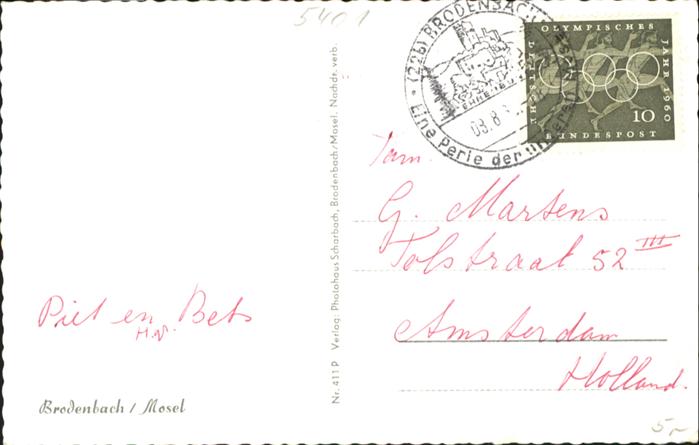 5401
(22b) BRODENBACH
EHRENBURG
08.8.
Eine Perle der unteren
OLYMPISCHES
JAHR 1960
10
BUNDESPOST
Fam.
G. Martens
Tolstraat 52 III
Amsterdam
Holland.
Piet en Bets
H.N.
Brodenbach / Mosel
Nr. 411 P Verlag: Photohaus Scharbach, Brodenbach/Mosel. Nachdr. verb.
5,-